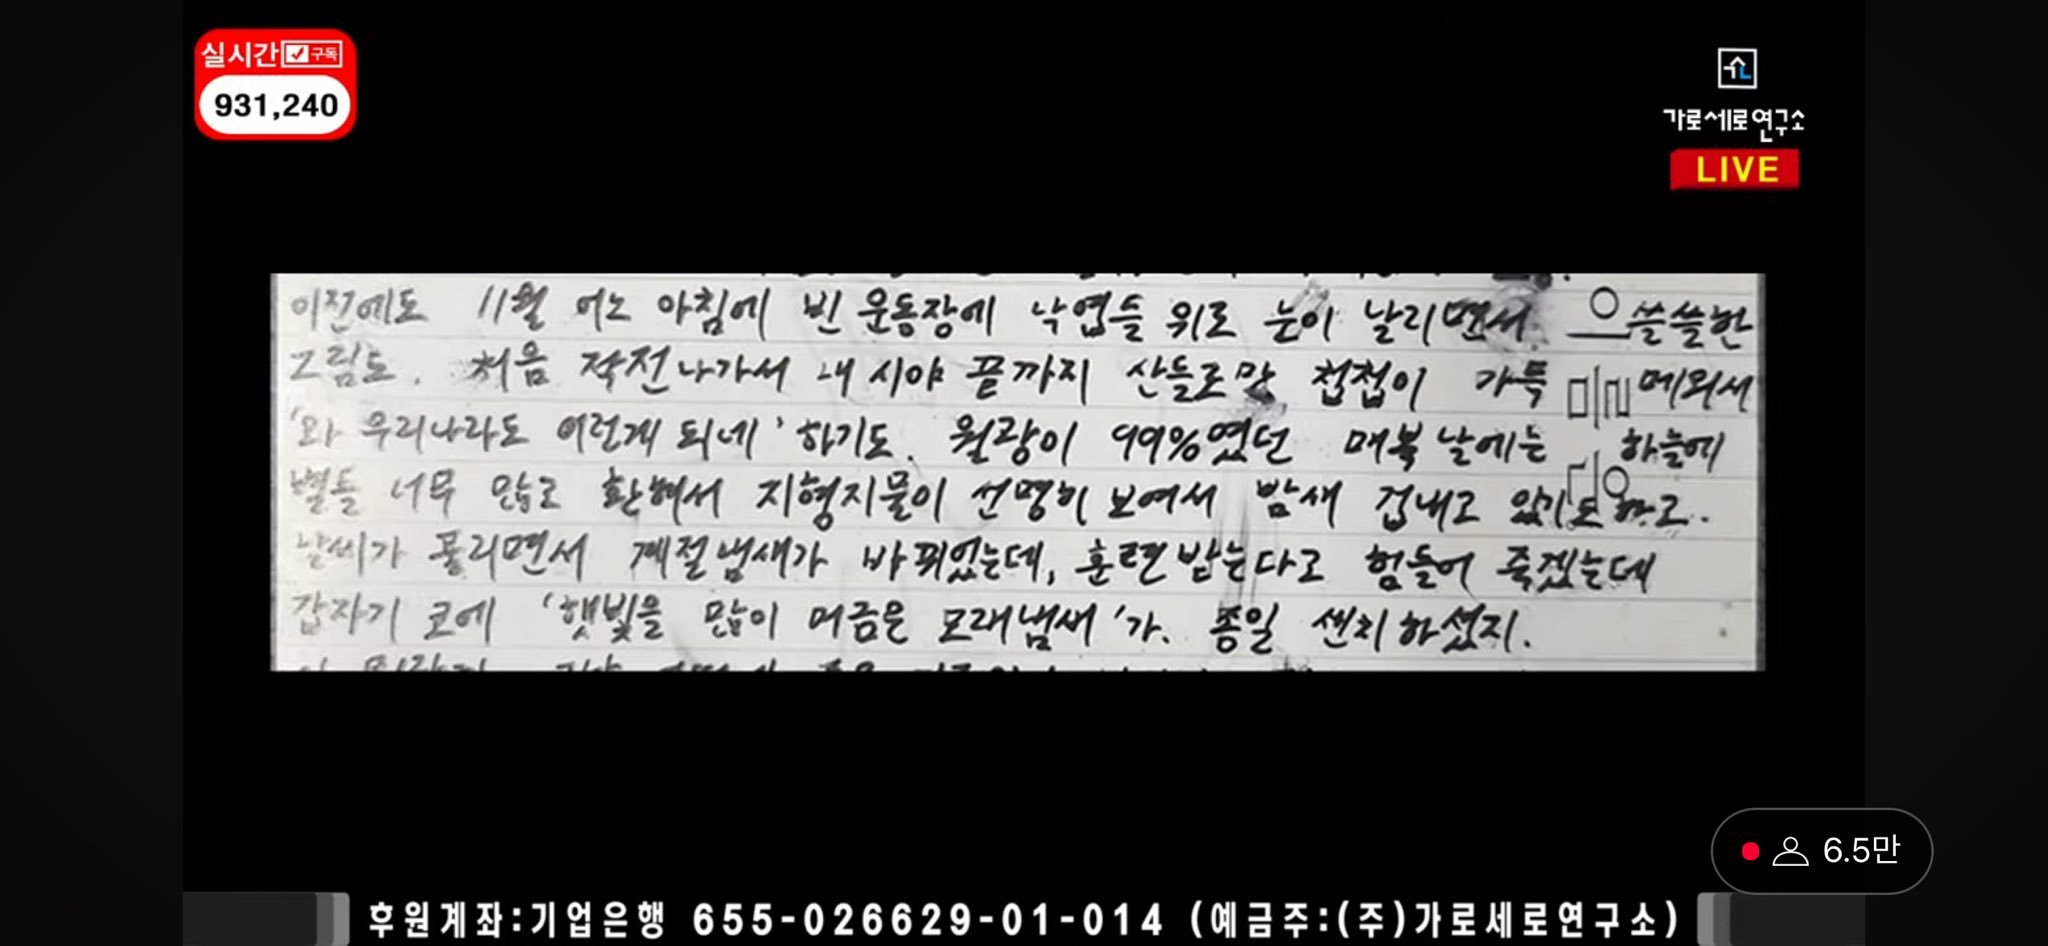 실시간 구독
931,240
가로세로연구소
LIVE
이전에도 11월 어느 아침에 빈 운동장에 낙엽들 위로 눈이 날리면서 쓸쓸한
그림도. 처음 작전나가서 내 시야 끝까지 산들로만 첩첩이 가득 메워서
'와 우리나라도 이런게 되네' 하기도. 월광이 99%였던 매복날에는 하늘에
별들 너무 많고 환해서 지형지물이 선명히 보여서 밤새 겁내고 있기도 하고.
날씨가 풀리면서 계절냄새가 바뀌었는데, 훈련받는다고 힘들어 죽겠는데
갑자기 코에 '햇빛을 많이 머금은 모래냄새'가. 종일 센치하셨지.
으
미르
6.5만
후원계좌:기업은행 655-026629-01-014 (예금주:(주)가로세로연구소)